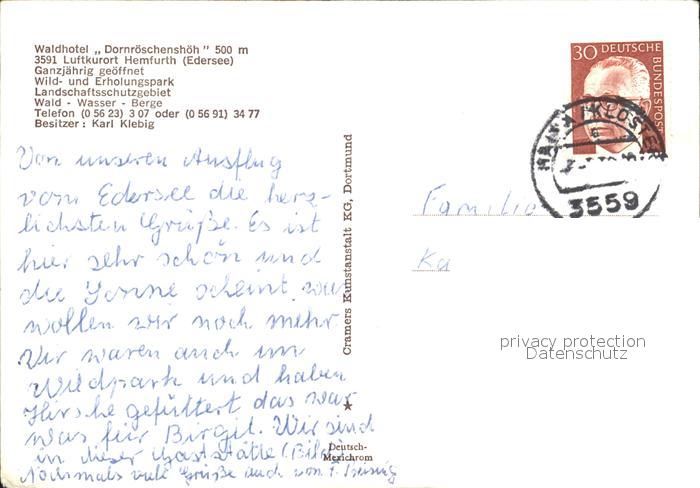 Waldhotel „Dornröschenshöh" 500 m
3591 Luftkurort Hemfurth (Edersee)
Ganzjährig geöffnet
Wild- und Erholungspark
Landschaftsschutzgebiet
Wald - Wasser - Berge
Telefon (0 56 23) 3 07 oder (0 56 91) 34 77
Besitzer: Karl Klebig
Von unseren Ausflug
vom Edersee die herz-
lichsten Grüße. Es ist
hier sehr schön und
die Sonne scheint, was
wollen wir noch mehr.
Wir waren auch im
Wildpark und haben
Hirsche gefüttert das war
was für Birgit. Wir sind
in dieser Gaststätte (Bild).
Nochmals viele Grüße auch von
Cramers Kunstanstalt KG, Dortmund
Deutsch-
Mexichrom
30 DEUTSCHE
BUNDESPOST
HAINA (KLOSTER)
3559
Familie
Ka
privacy protection
Datenschutz